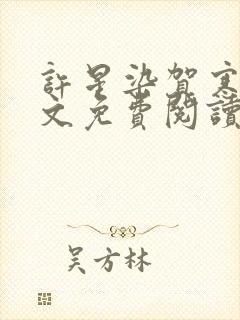 許星染賀寒
文免費閱讀
吴方林